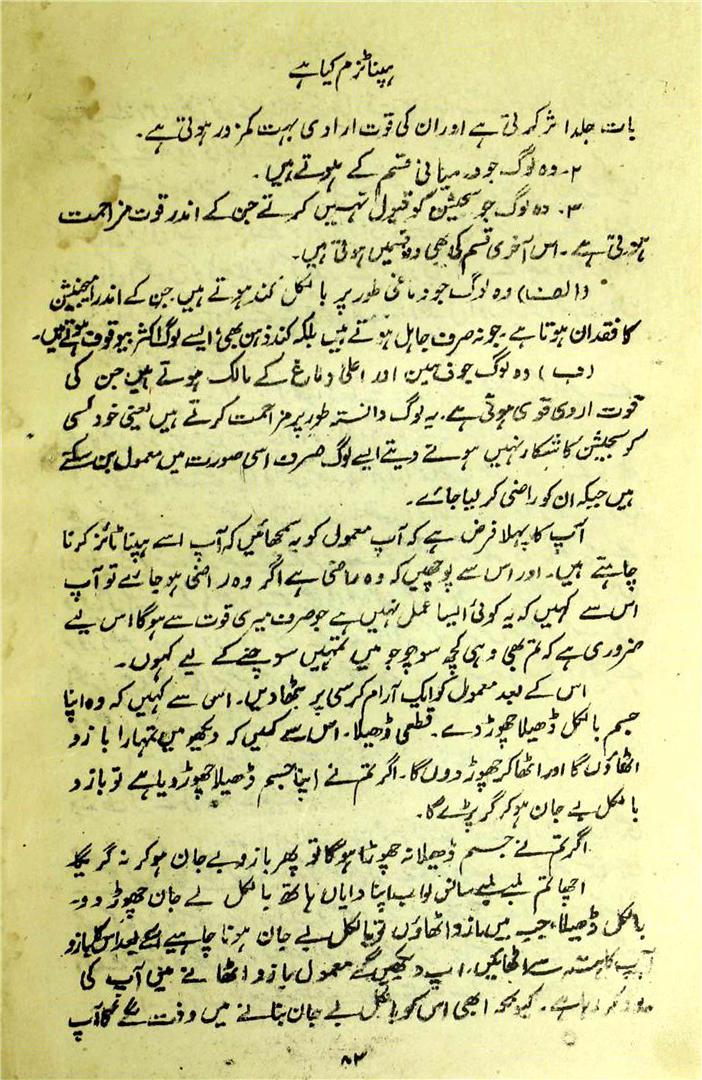 ہپناٹزم کیا ہے
بات جلد اثر کرتی ہے اور ان کی قوت ارادی بہت کمزور ہوتی ہے۔
۲۔ وہ لوگ جو درمیانی قسم کے ہوتے ہیں۔
۳۔ وہ لوگ جو سجیشن کو قبول نہیں کرتے جن کے اندر قوت مزاحمت
ہوتی ہے۔ اس آخری قسم کی بھی دو قسمیں ہوتی ہیں۔
(الف) وہ لوگ جو دماغی طور پر بالکل کند ہوتے ہیں جن کے اندر امیجنیشن
کا فقدان ہوتا ہے۔ جو نہ صرف جاہل ہوتے ہیں بلکہ کند ذہن بھی، ایسے لوگ اکثر بیوقوف ہوتے ہیں۔
(ب) وہ لوگ جو ذہین اور اعلیٰ دماغ کے مالک ہوتے ہیں جن کی
قوت اردی قوی ہوتی ہے۔ یہ لوگ دانستہ طور پر مزاحمت کرتے ہیں یعنی خود کسی
کو سجیشن کا شکار نہیں ہونے دیتے ایسے لوگ صرف اسی صورت میں معمول بن سکتے
ہیں جبکہ ان کو راضی کر لیا جائے۔
آپ کا پہلا فرض ہے کہ آپ معمول کو یہ سمجھائیں کہ آپ اسے ہپناٹائز کرنا
چاہتے ہیں۔ اور اس سے پوچھیں کہ وہ راضی ہے اگر وہ راضی ہو جائے تو آپ
اس سے کہیں کہ یہ کوئی ایسا عمل نہیں ہے جو صرف میری قوت سے ہوگا اس لیے
ضروری ہے کہ تم بھی وہی کچھ سوچو جو میں تمہیں سوچنے کے لیے کہوں۔
اس کے بعد معمول کو ایک آرام کرسی پر بٹھا دیں۔ اس سے کہیں کہ وہ اپنا
جسم بالکل ڈھیلا چھوڑ دے۔ قطعی ڈھیلا۔ اس سے کہیں کہ دیکھو میں تمہارا بازو
اٹھاؤں گا اور اٹھا کر چھوڑ دوں گا۔ اگر تم نے اپنا جسم ڈھیلا چھوڑ دیا ہے تو بازو
بالکل بے جان ہو کر گر پڑے گا۔
اگر تم نے جسم ڈھیلا نہ چھوڑا ہوگا تو پھر بازو بے جان ہو کر نہ گریگا
اچھا تم لمبے لمبے سانس لو اب اپنا دایاں ہاتھ بالکل بے جان چھوڑ دو۔
بالکل ڈھیلا، جب میں بازو اٹھاؤں تو بالکل بے جان ہونا چاہیے اسکے بعد اس کا بازو
آہستہ سے اٹھائیں۔ آپ دیکھیں گے معمول بازو اٹھانے میں آپ کی
مدد کر رہا ہے۔ کیونکہ ابھی اس کو بالکل بے جان بنانے میں وقت لگے گا آپ
۸۳